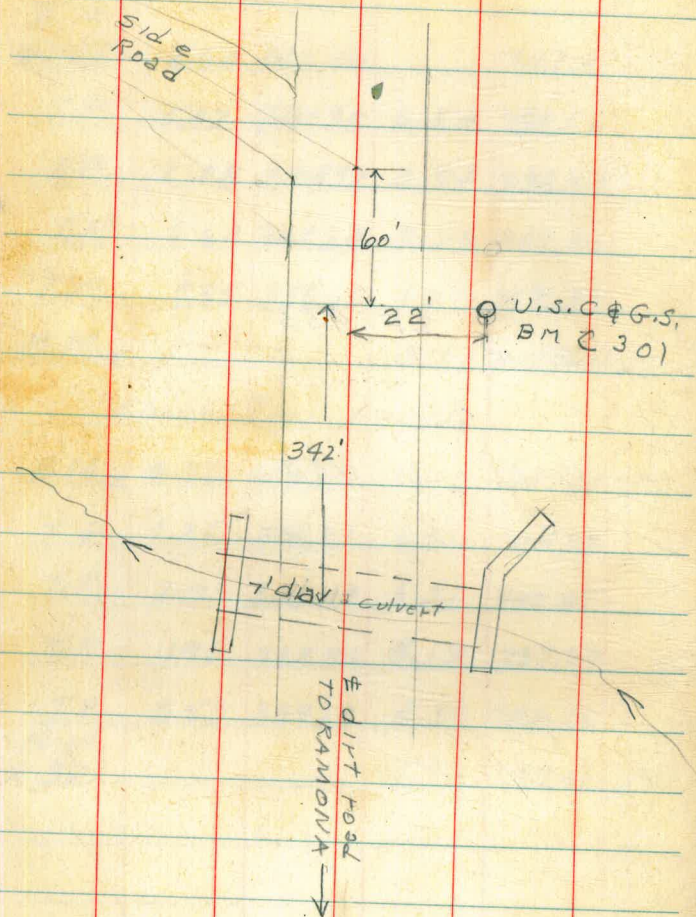 Side
Road
60'
22'
U.S.C & G.S.
BM Z 301
342'
7' dia culvert
℄ dirt road
TO RAMONA